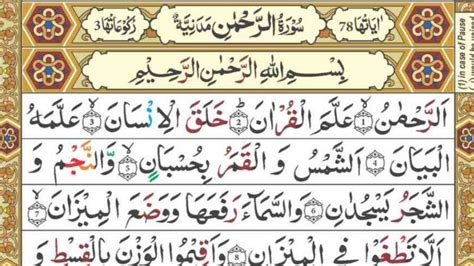 اٰیَاتُهَا 78 سُوْرَةُ الرَّحْمٰنِ مَدَنِيَّةٌ رُكُوْعَاتُهَا 3
بِسْمِ اللّٰهِ الرَّحْمٰنِ الرَّحِيْمِ
اَلرَّحْمٰنُ ۙ 1 عَلَّمَ الْقُرْاٰنَ ؕ 2 خَلَقَ الْاِنْسَانَ ۙ 3 عَلَّمَهُ
الْبَيَانَ 4 اَلشَّمْسُ وَ الْقَمَرُ بِحُسْبَانٍ ۪ 5 وَّالنَّجْمُ وَ
الشَّجَرُ يَسْجُدٰنِ 6 وَالسَّمَآءَ رَفَعَهَا وَوَضَعَ الْمِيْزَانَ ۙ 7
اَلَّا تَطْغَوْا فِي الْمِيْزَانِ 8 وَاَقِيْمُوا الْوَزْنَ بِالْقِسْطِ وَ
(1) in case of Pause